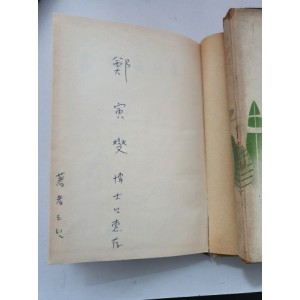 鄭寅燮 博士 惠存
著者